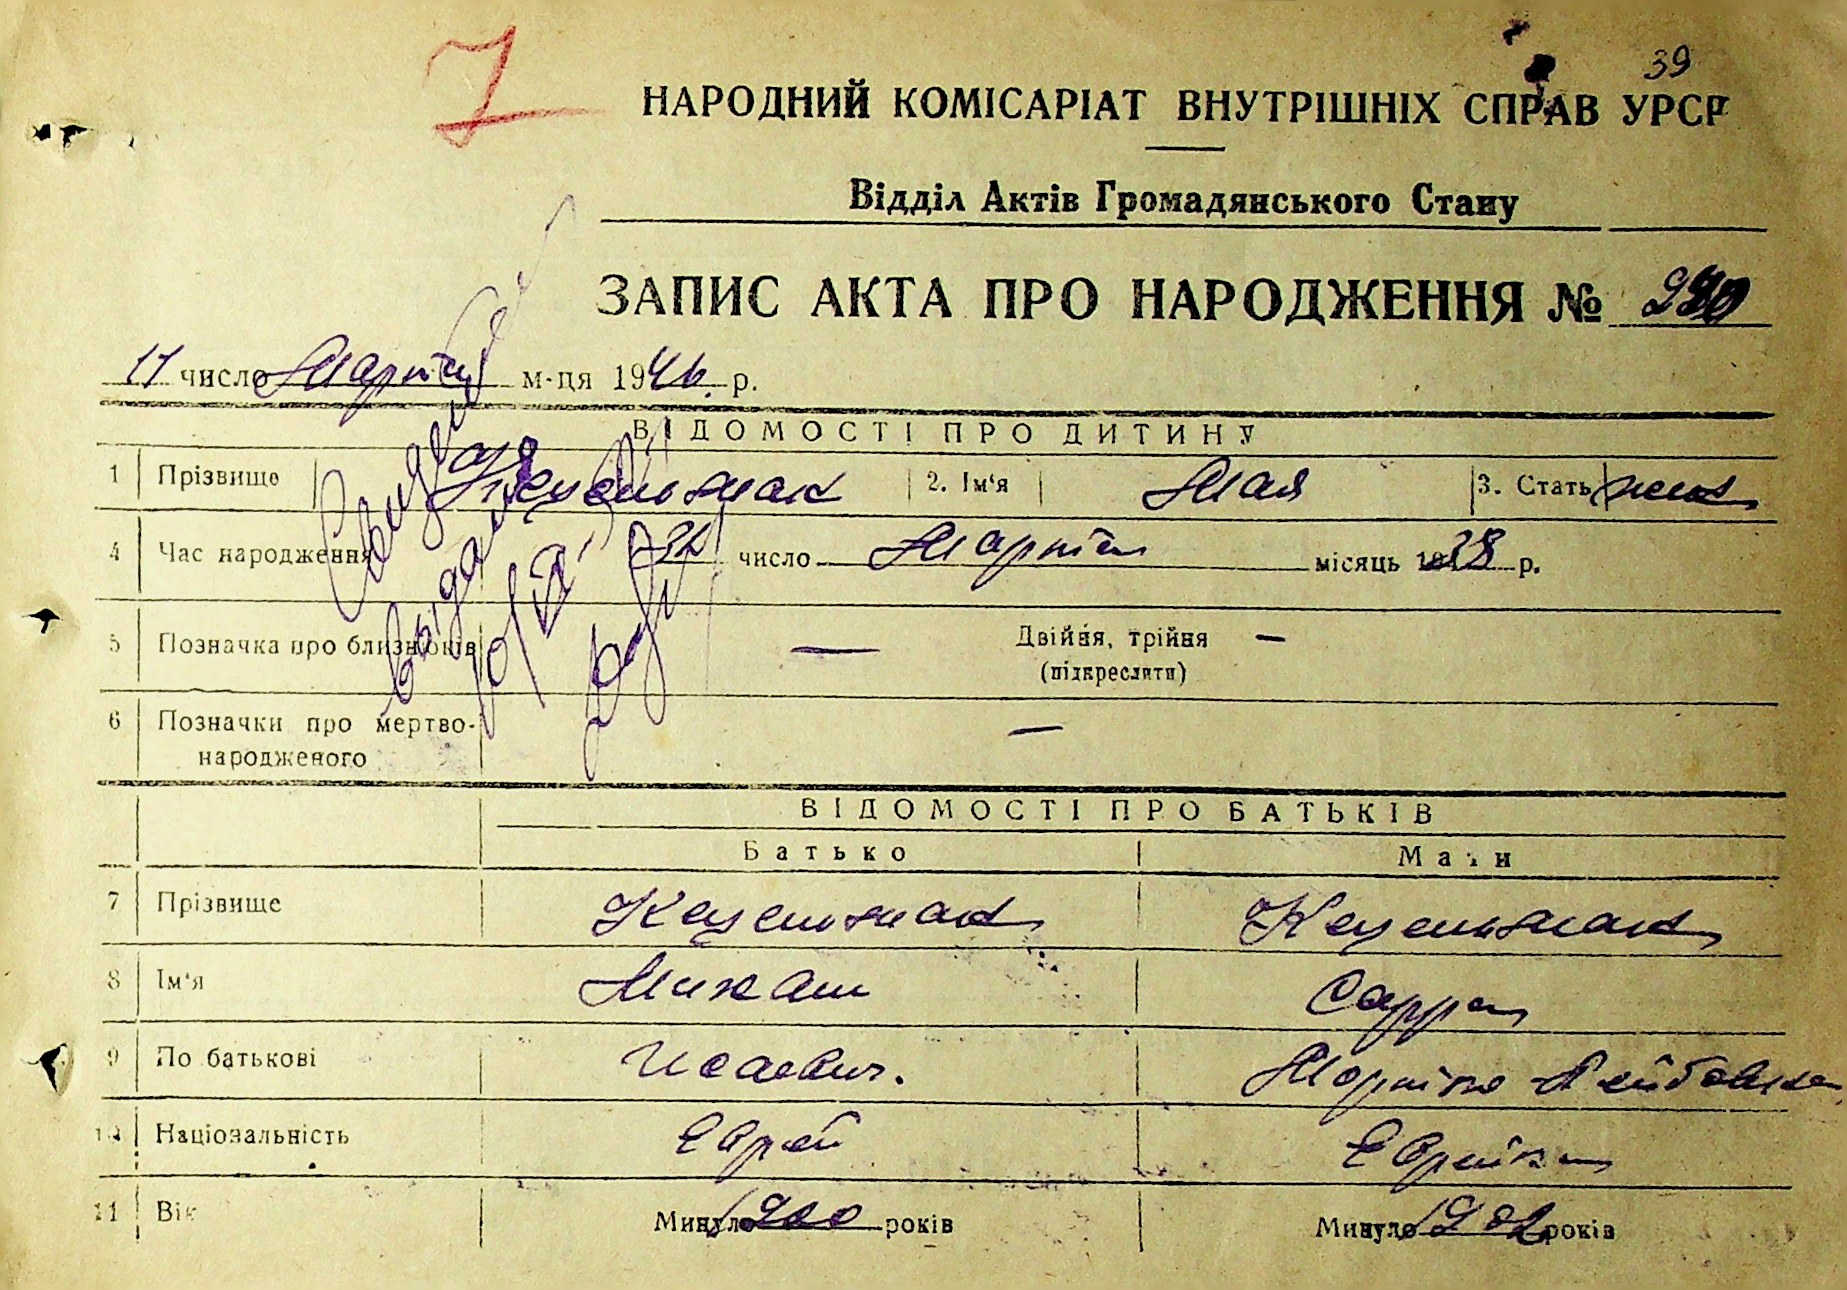 39
7
НАРОДНИЙ КОМІСАРІАТ ВНУТРІШНІХ СПРАВ УРСР
Відділ Актів Громадянського Стану
ЗАПИС АКТА ПРО НАРОДЖЕННЯ №
11 число Марта м-ця 1946 р.
ВІДОМОСТІ ПРО ДИТИНУ
1 Прізвище Кецельман 2. Ім'я Мая 3. Стать жен
4 Час народження число Марта місяць 1938 р.
5 Позначка про близнюків — Двійня, трійня —
(підкреслити)
6 Позначки про мертво-
народженого —
ВІДОМОСТІ ПРО БАТЬКІВ
Батько Мати
7 Прізвище Кецельман Кецельман
8 Ім'я Михаил Сарра
9 По батькові Исаевич. Мортко Лейбовна
10 Національність Еврей Еврейка
11 Вік Минуло 1900 років Минуло 1902 років
Свидет
выдано